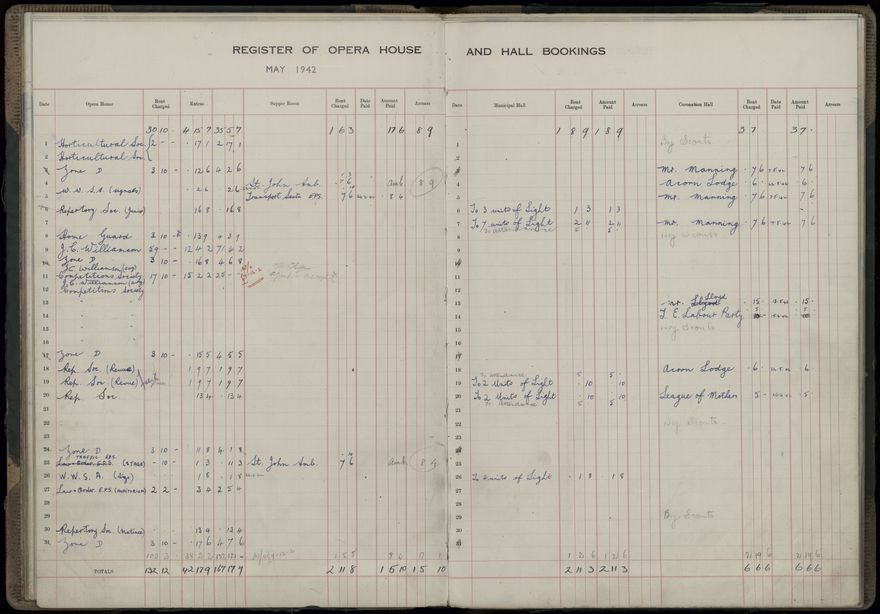 REGISTER OF OPERA HOUSE AND HALL BOOKINGS
MAY 1942
Date Opera House Rent Charged Extras Supper Room Rent Charged Date Paid Amount Paid Arrears Date Municipal Hall Rent Charged Amount Paid Arrears Coronation Hall Rent Charged Date Paid Amount Paid Arrears
30 10 - 4 15 7 35 5 7 1 6 3 17 6 8 9 1 8 9 1 8 9 3 7 3 7
1 Horticultural Soc. 2 - - 17 1 2 17 1 1 Boy Scouts
2 Horticultural Soc. 2
3 Zone D 3 10 - 12 6 4 2 6 3 Mr. Manning 7 6 7 6
4 St. John Amb. 7 6 8 9 4 Acorn Lodge 6 6
5 W.W.S.A. (Signals) 2 6 2 6 Transport Sectn E.P.S. 7 6 8 4 5 Mr. Manning 7 6 7 6
6 Repertory Soc. 16 8 16 8 6 To 3 units of Light 1 3 1 3
7 7 To 7 units of Light 2 11 2 11 Mr. Manning 7 6 7 6
To Attendance 5 5
8 Home Guard 3 10 - 13 9 4 3 9 8 Boy Scouts
9 J.C. Williamson 59 - - 12 4 2 71 4 2 9
10 Zone D 3 10 - 16 8 4 6 8 10
J.C. Williamson
11 Competitions Society 17 10 - 15 2 2 25 - - 11
J.C. Williamson
12 Competitions Society 12
13 13 Mr. Lloyd 15 15
14 14 T. E. Labour Party
15 15 Boy Scouts
16 16
17 Zone D 3 10 - 15 5 4 5 5 17
18 Rep. Soc. (Revue) 1 9 7 1 9 7 18 To Attendance 5 5 Acorn Lodge 6 6
19 Rep. Soc (Revue) 1 9 7 1 9 7 19 To 2 Units of Light 10 10
20 Rep. Soc 13 4 13 4 20 To 2 Units of Light 10 10 League of Mothers 5 5
21 21 To Attendance 5 5
22 22 Boy Scouts
23 23
24 Zone D 3 10 - 11 8 4 1 8 24
TRAFFIC E.P.S.
25 Law & Order E.P.S. (STAGE) - 10 - 1 3 11 3 St. John Amb. 7 6 8 4 25
26 W.W.S.A. (Sigs) 1 8 1 8 26 To 4 units of Light 1 8 1 8
27 Law & Order E.P.S. (AUDITORIUM) 2 2 - 3 4 2 5 4 27
28 28
29 29 Boy Scouts
30 Repertory Soc. (Matinee) 13 4 13 4 30
31 Zone D 3 10 - 17 6 4 7 6 31
TOTALS 132 12 42 17 9 167 17 9 2 11 8 1 5 10 1 5 10 2 11 3 2 11 3 6 6 6 6 6 6